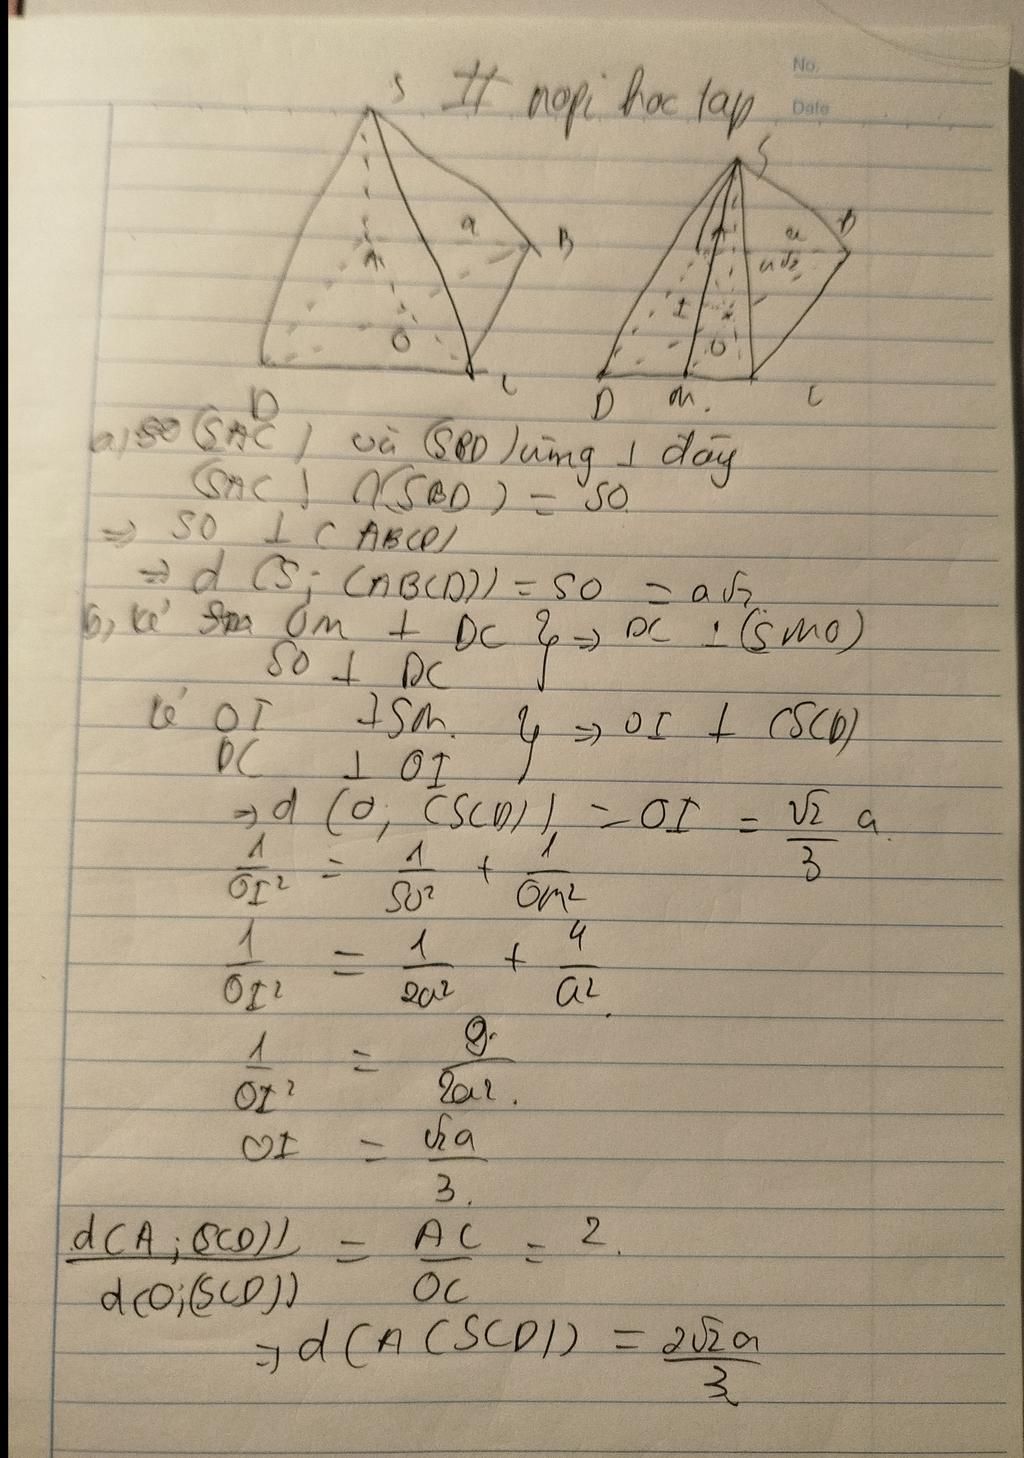 No.
Date
# nopi hoc tap
S
a
B
A
O
D
C
S
B
a
a√2
A
I
O
D
M.
C
a, (SAC) và (SBD) cùng ⊥ đáy
(SAC) ∩ (SBD) = SO
=> SO ⊥ (ABCD)
=> d (S; (ABCD)) = SO = a√2
b, kẻ OM ⊥ DC } => DC ⊥ (SMO)
SO ⊥ DC
kẻ OI ⊥ SM. } => OI ⊥ (SCD)
DC ⊥ OI
=> d (O; (SCD)) = OI = √2/3 a.
1/OI² = 1/SO² + 1/OM²
1/OI² = 1/2a² + 4/a².
1/OI² = 9/2a².
OI = √2a/3.
d(A;(SCD))/d(O;(SCD)) = AC/OC = 2.
=> d(A (SCD)) = 2√2a/3